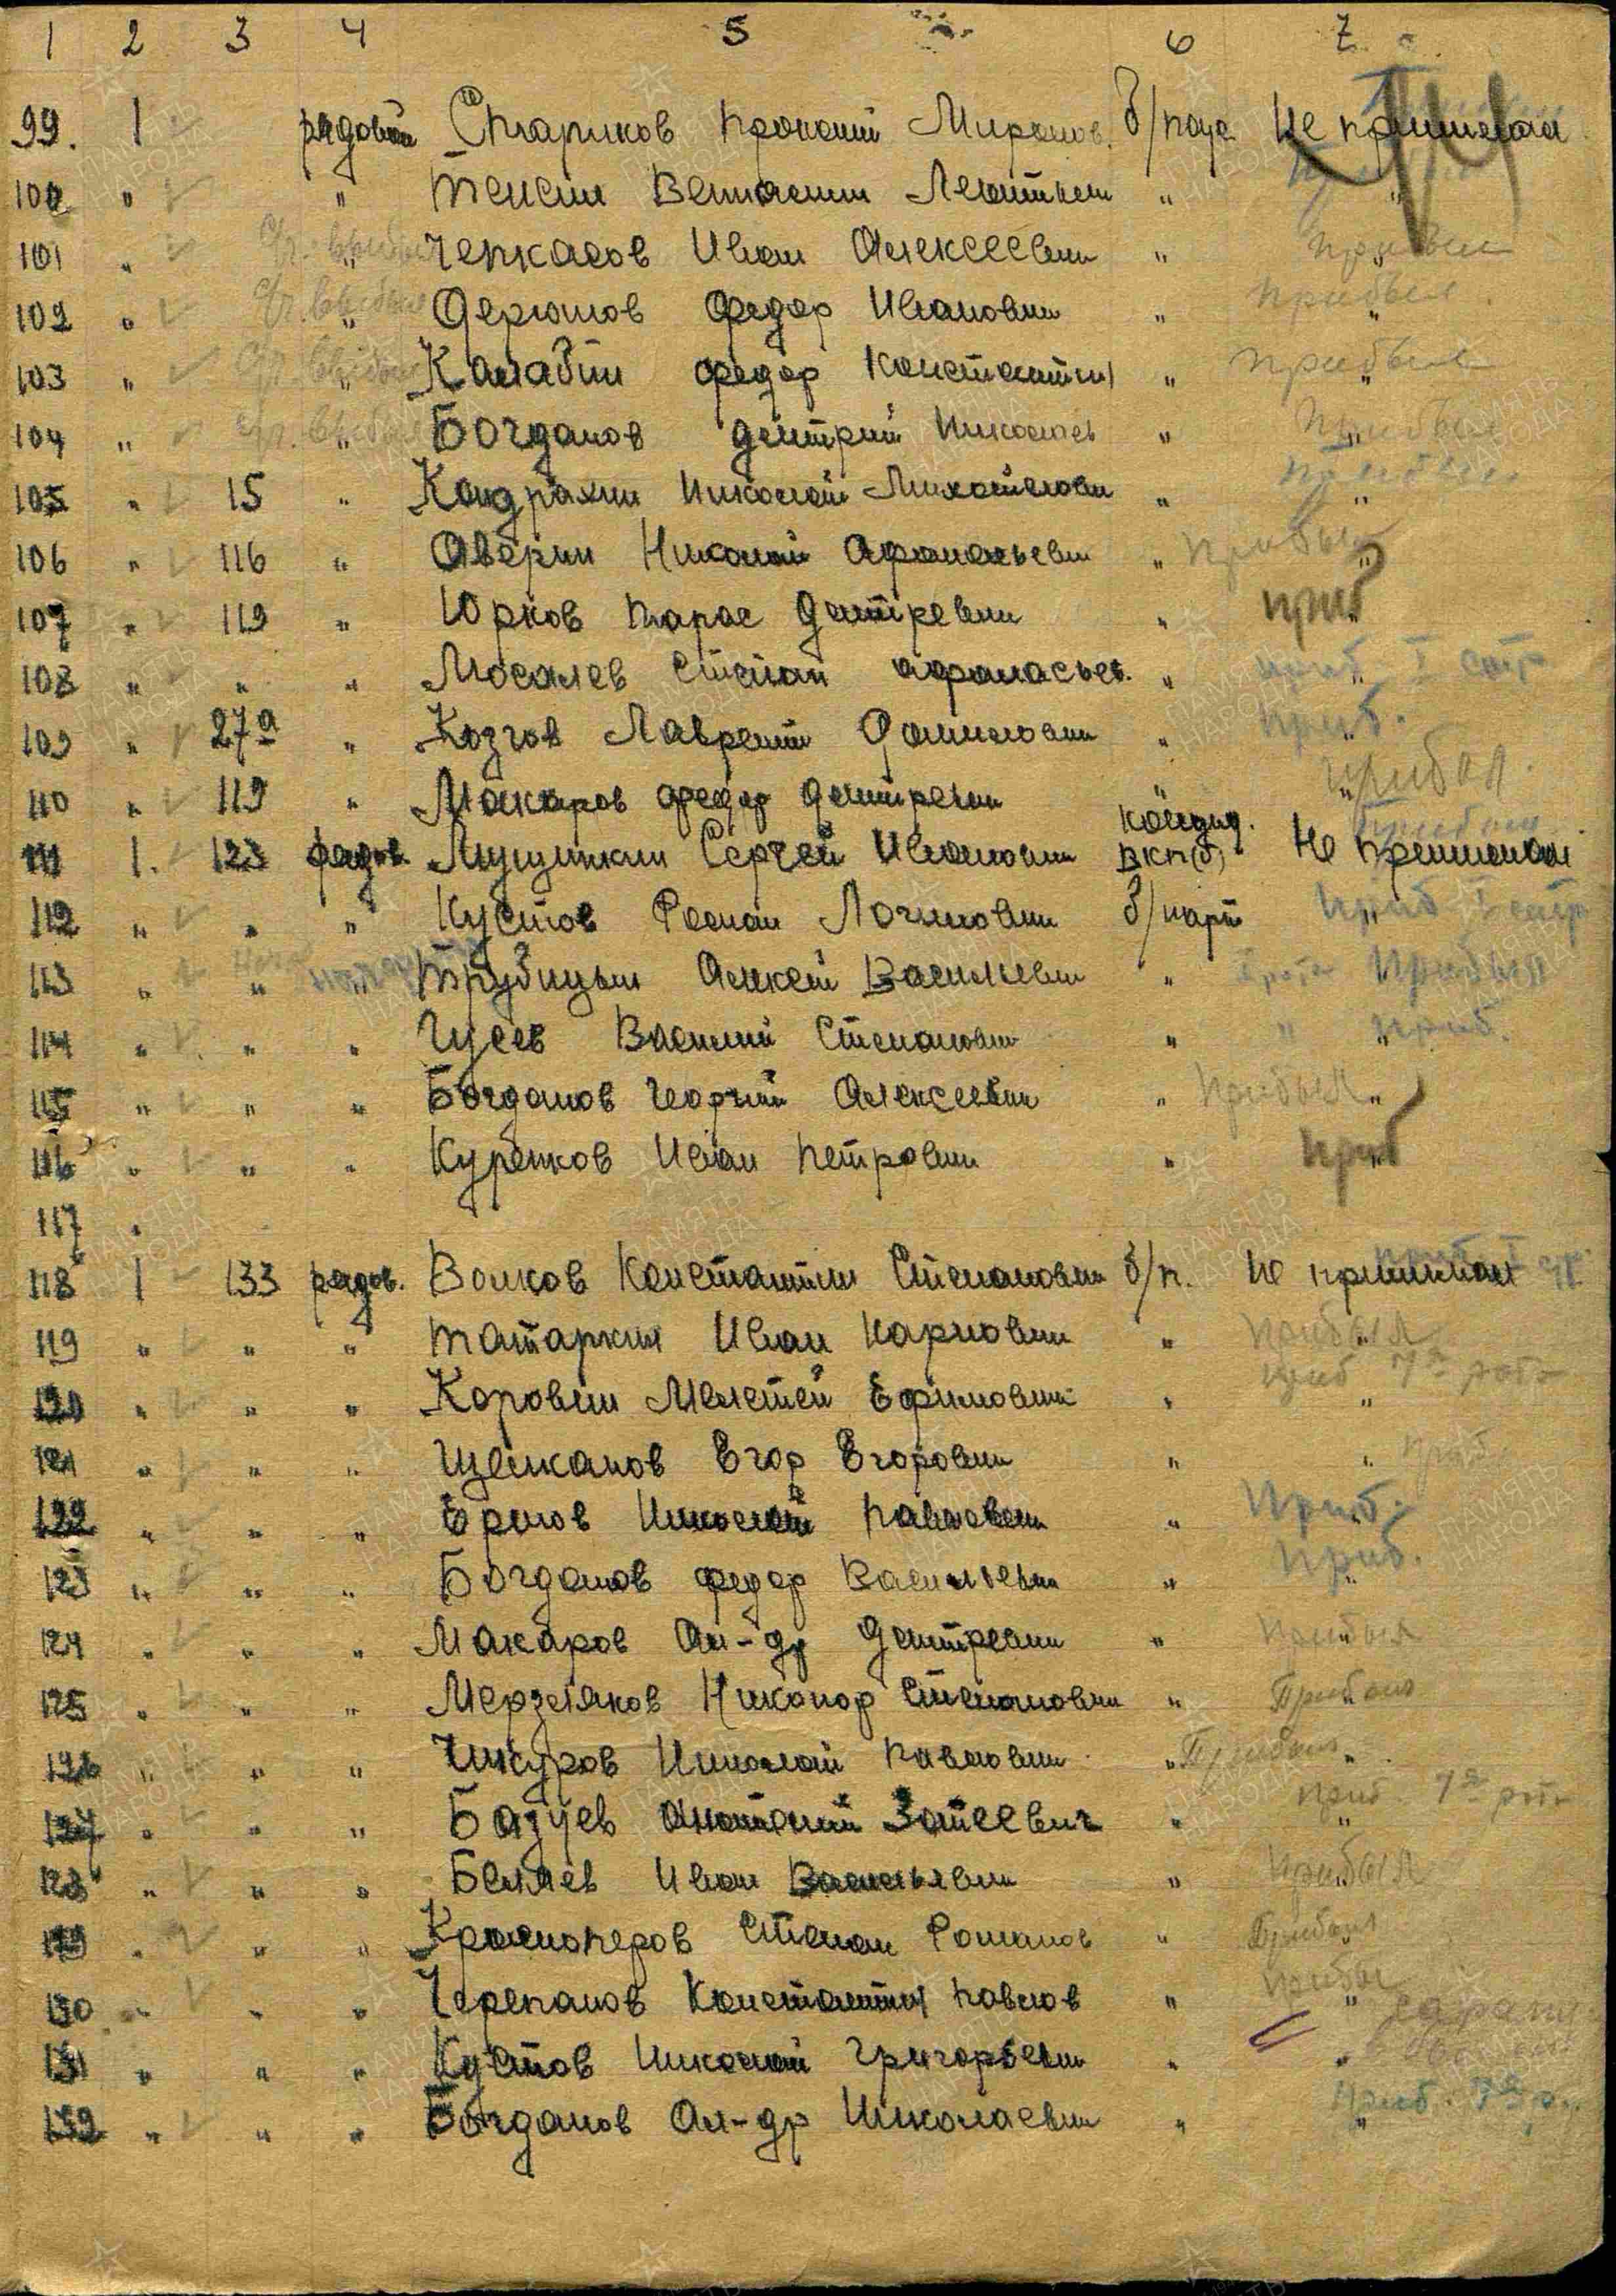 1 2 3 4 5 6 7
99. 1 рядовой Стариков Прокопий Миронов. б/парт Не принимал
100 " " Телегин Вениамин Леонтьев " "
101 " " Черкасов Иван Алексеевич " прибыл
102 " " Дерюшов Федор Иванович " прибыл
103 " " Калабин Федор Константин " прибыл
104 " " Богданов Дмитрий Николаев " прибыл
105 " 15 " Кондрахин Николай Михайлович " прибыл
106 " 116 " Аверин Николай Афанасьевич " прибыл
107 " 119 " Юрков Тарас Дмитревич " приб
108 " " " Мосалев Степан Афанасьев. " приб I
109 " 27а " Козлов Лаврентий Данилович " приб.
110 " 119 " Макаров Федор Дмитревич " прибыл
111 1. 123 рядов. Лущинкин Сергей Иванович кандид. ВКП(б) Не принимал
112 " " " Кустов Роман Логинович б/парт приб I
113 " " " Трубицын Алексей Васильевич " прибыл
114 " " " Гусев Василий Степанович " приб.
115 " " " Богданов Георгий Алексеевич " прибыл
116 " " " Куренков Иван Петрович " приб
117 "
118 1 133 рядов. Волков Константин Степанович б/п. Не принимал
119 " " " Татаркин Иван Карпович " прибыл
120 " " " Коровин Мелетей Ефимович " приб 7я рота
121 " " " Щелканов Егор Егорович " приб.
122 " " " Ершов Николай Павлович " Приб.
123 " " " Богданов Федор Васильевич " Приб.
124 " " " Макаров Ал-др Дмитревич " прибыл
125 " " " Мерзляков Никонор Степанович " Прибыл
126 " " " Чикуров Николай Павлович " Прибыл
127 " " " Базуев Анатолий Затеевич " приб 7я рота
128 " " " Беляев Иван Васильевич " прибыл
129 " " " Красноперов Степан Романов " Прибыл
130 " " " Черепанов Константин Павлов " прибыл
131 " " " Кустов Николай Григорьевич "
132 " " " Богданов Ал-др Николаевич " приб. 7я р.